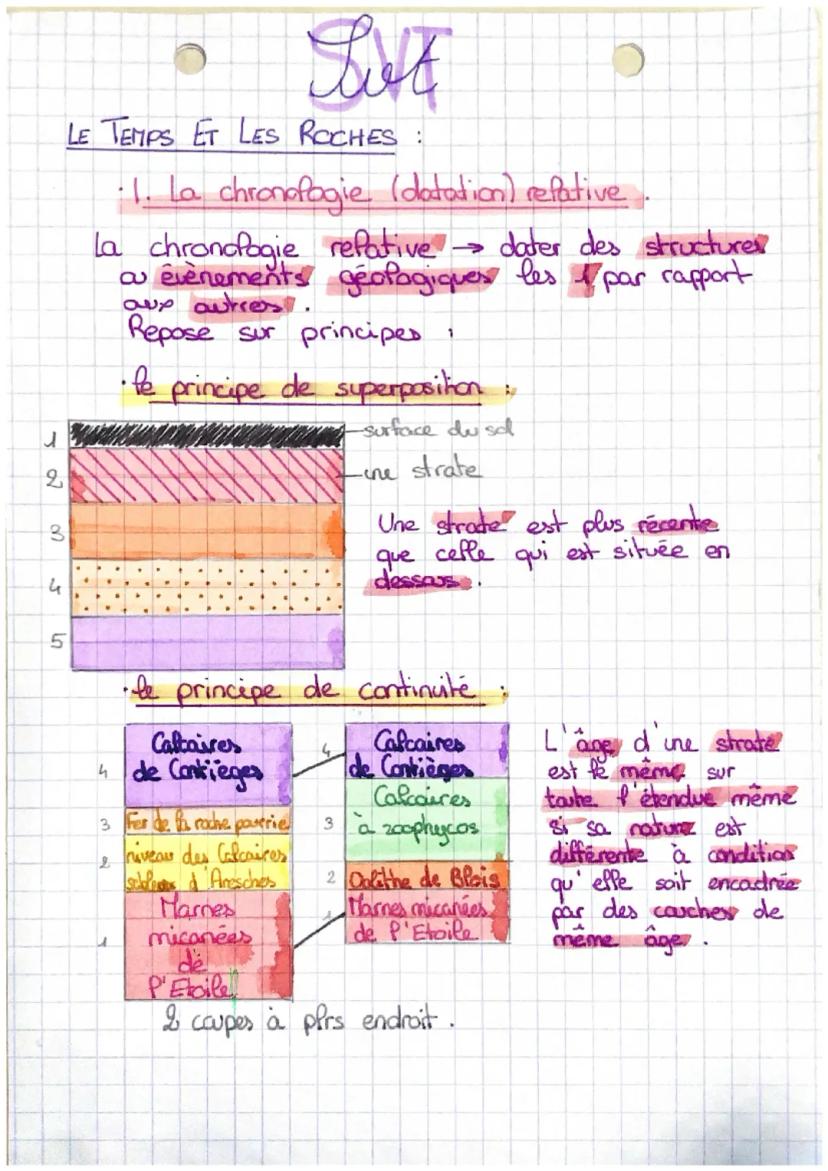 SVT
Svt
LE TEMPS ET LES ROCHES :
· 1. La chronologie (datation) relative.
La chronologie relative → dater des structures
ou évènements géologiques les 1 par rapport
aux autres.
Repose sur principes :
· le principe de superposition :
1
surface du sol
2
une strate
3
4
5
Une strate est plus récente
que celle qui est située en
dessous.
· le principe de continuité :
4
Calcaires
de Contièges
3
Fer de la roche pourrie
2
niveau des Calcaires
sableux d'Aresches
1
Marnes
micanées
de
l'Etoile
4
Calcaires
de Contièges
3
Calcaires
à zoophycos
2
Oolithe de Blois
1
Marnes micanées
de l'Etoile
L'âge d'une strate
est le même sur
toute l'étendue même
si sa nature est
différente à condition
qu'elle soit encadrée
par des couches de
même âge.
2 coupes à plrs endroit.